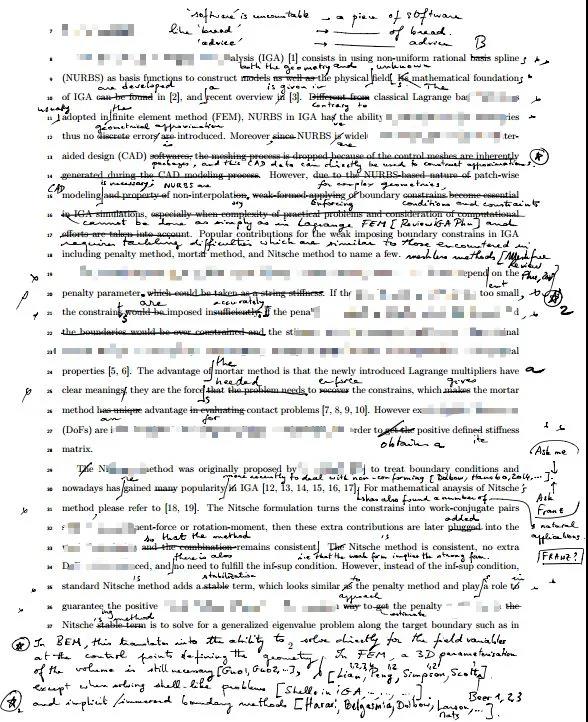 "software" is uncountable → a piece of software
like "bread" → of bread.
"advice" → advice B
7
8 alysis (IGA) [1] consists in using non-uniform rational basis spline
both the geometry and unknown
9 (NURBS) as basis functions to construct models as well as the physical field. The mathematical foundations
are developed a is given in
10 of IGA can be found in [2], and recent overview in [3]. Different from classical Lagrange ba
usually the contrary to
11 adopted in finite element method (FEM), NURBS in IGA has the ability ries
geometrical approximation
12 thus no discrete errors are introduced. Moreover since NURBS is widel ter-
13 aided design (CAD) softwares, the meshing process is dropped because of the control meshes are inherently
packages, and this CAD data can directly be used to construct approximations.
14 generated during the CAD modeling process. However, due to the NURBS-based nature of patch-wise
CAD is necessary NURBS are for complex geometries.
15 modeling and property of non-interpolation, weak-formed applying of boundary constrains become essential
enforcing conditions and constraints
16 in IGA simulations, especially when complexity of practical problems and consideration of computational
cannot be done as simply as in Lagrange FEM [Review IGA Phu] and
17 efforts are taken into account. Popular contributions for the weak imposing boundary constrains in IGA
requires tackling difficulties which are similar to those encountered in
18 including penalty method, mortar method, and Nitsche method to name a few. meshless methods [Meshfree Review Phu,
19 epend on the
20 penalty parameter, which could be taken as a string stiffness. If the too small,
are accurately
21 the constrains would be imposed insufficiently. If the penal d,
2
22 the boundaries would be over constrained and the sti nal
24 al
24 properties [5, 6]. The advantage of mortar method is that the newly introduced Lagrange multipliers have a
the
25 clear meanings, they are the force that the problem needs to recover the constrains, which makes the mortar
needed enforce gives
26 method has unique advantage in evaluating contact problems [7, 8, 9, 10]. However ex
for
27 (DoFs) are i rder to get the positive defined stiffness
obtain a ite
28 matrix.
29 The Ni method was originally proposed by ] to treat boundary conditions and
more recently to deal with non-conforming [Dolbow, Hansbo, 2014, ...].
30 nowadays has gained many popularity in IGA [12, 13, 14, 15, 16, 17]. For mathematical anaysis of Nitsche's
has also found a number of
Ask me
Ask Franz
s natural applications.
FRANZ?
31 method please refer to [18, 19]. The Nitsche formulation turns the constrains into work-conjugate pairs
added
32 s ent-force or rotation-moment, then these extra contributions are later plugged into the
so that the method is
33 and the combination remains consistent. The Nitsche method is consistent, no extra
there is also i.e. that the weak form implies the strong form.
34 Do ced, and no need to fulfill the inf-sup condition. However, instead of the inf-sup condition,
stabilization
35 standard Nitsche method adds a stable term, which looks similar as the penalty method and play a role to
to s in
36 guarantee the positive way to get the penalty the
approach estimate
ing method
37 Nitsche stable term is to solve for a generalized eigenvalue problem along the target boundary such as in
2
In BEM, this translates into the ability to solve directly for the field variables
at the control points defining the geometry. In FEM, a 3D parameterisation
of the volume is still necessary [Guo1, Guo2, ...], [Lian, Peng, Simpson, Scott]
except when solving shell-like problems [Shells in IGA ..., ...]
and implicit/immersed boundary methods [Haraši, Belgasmia, Dolbow, Larson, ...
Beer 1,2,3